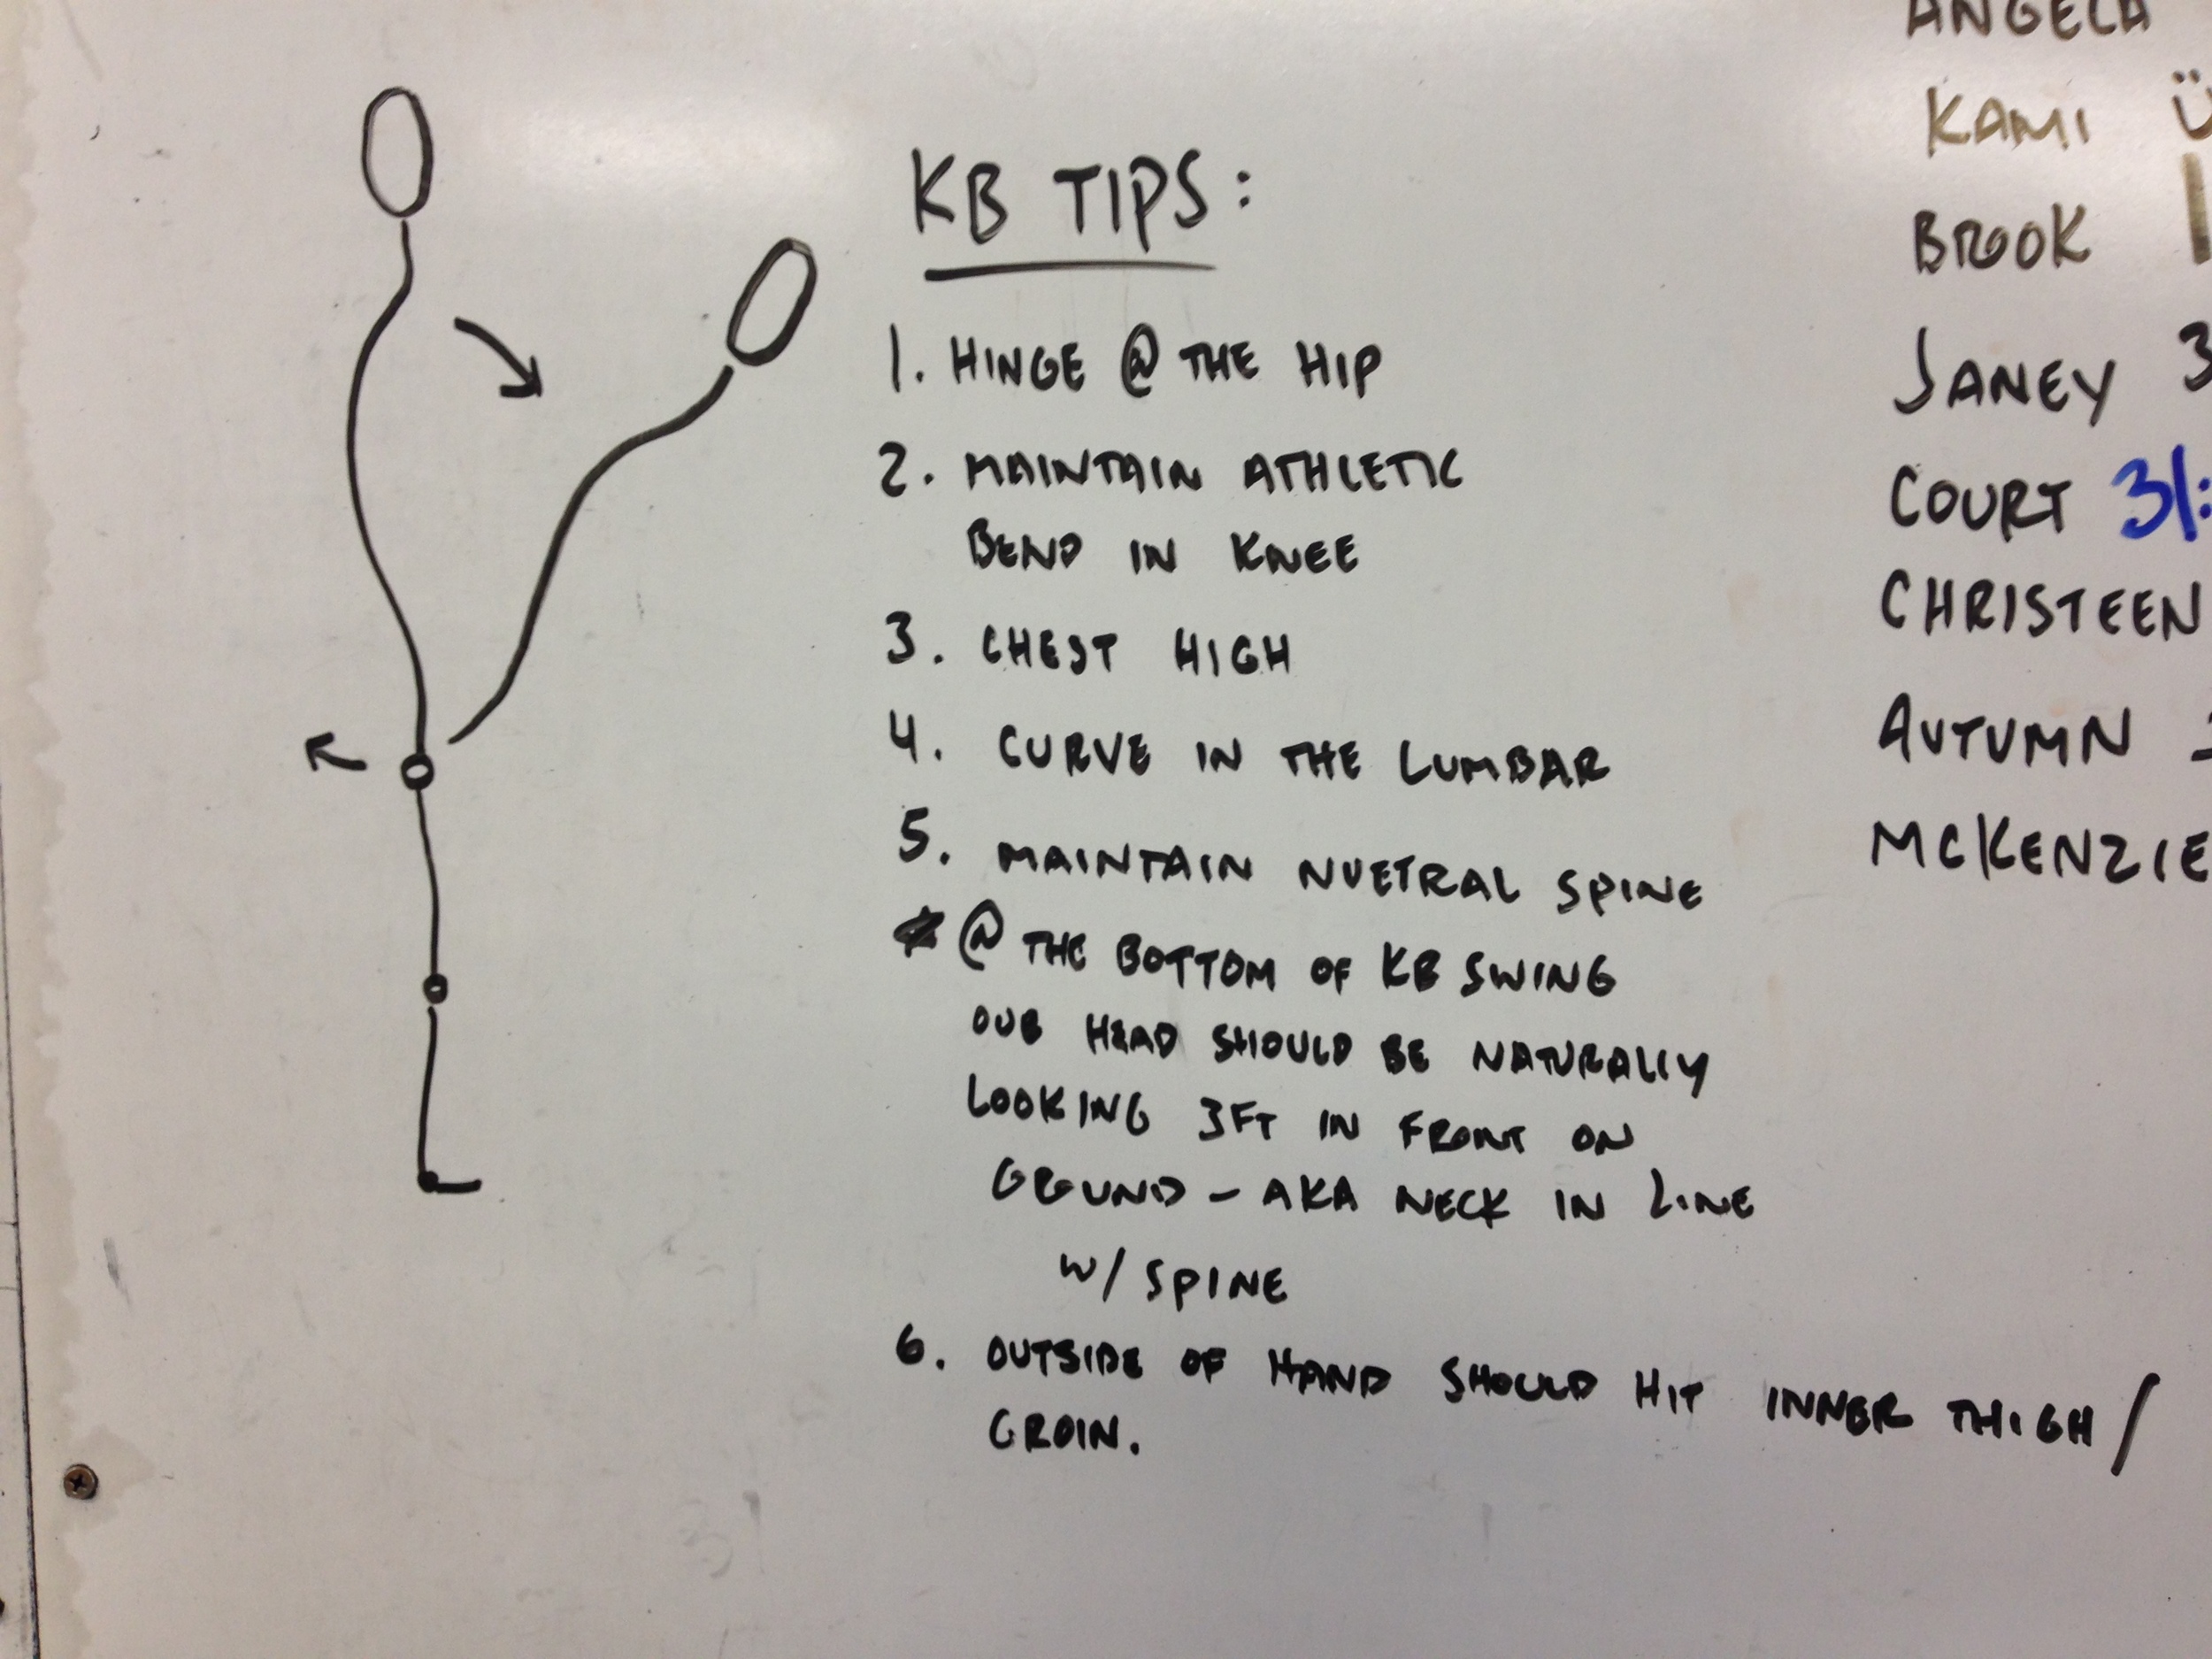 KB TIPS:
1. HINGE @ THE HIP
2. MAINTAIN ATHLETIC
BEND IN KNEE
3. CHEST HIGH
4. CURVE IN THE LUMBAR
5. MAINTAIN NUETRAL SPINE
* @ THE BOTTOM OF KB SWING
OUR HEAD SHOULD BE NATURALLY
LOOKING 3FT IN FRONT ON
GROUND - AKA NECK IN LINE
W/ SPINE
6. OUTSIDE OF HAND SHOULD HIT INNER THIGH/
GROIN.
ANGELA
KAMI Ü
BROOK
JANEY 3
COURT 31:
CHRISTEEN
AUTUMN
MCKENZIE